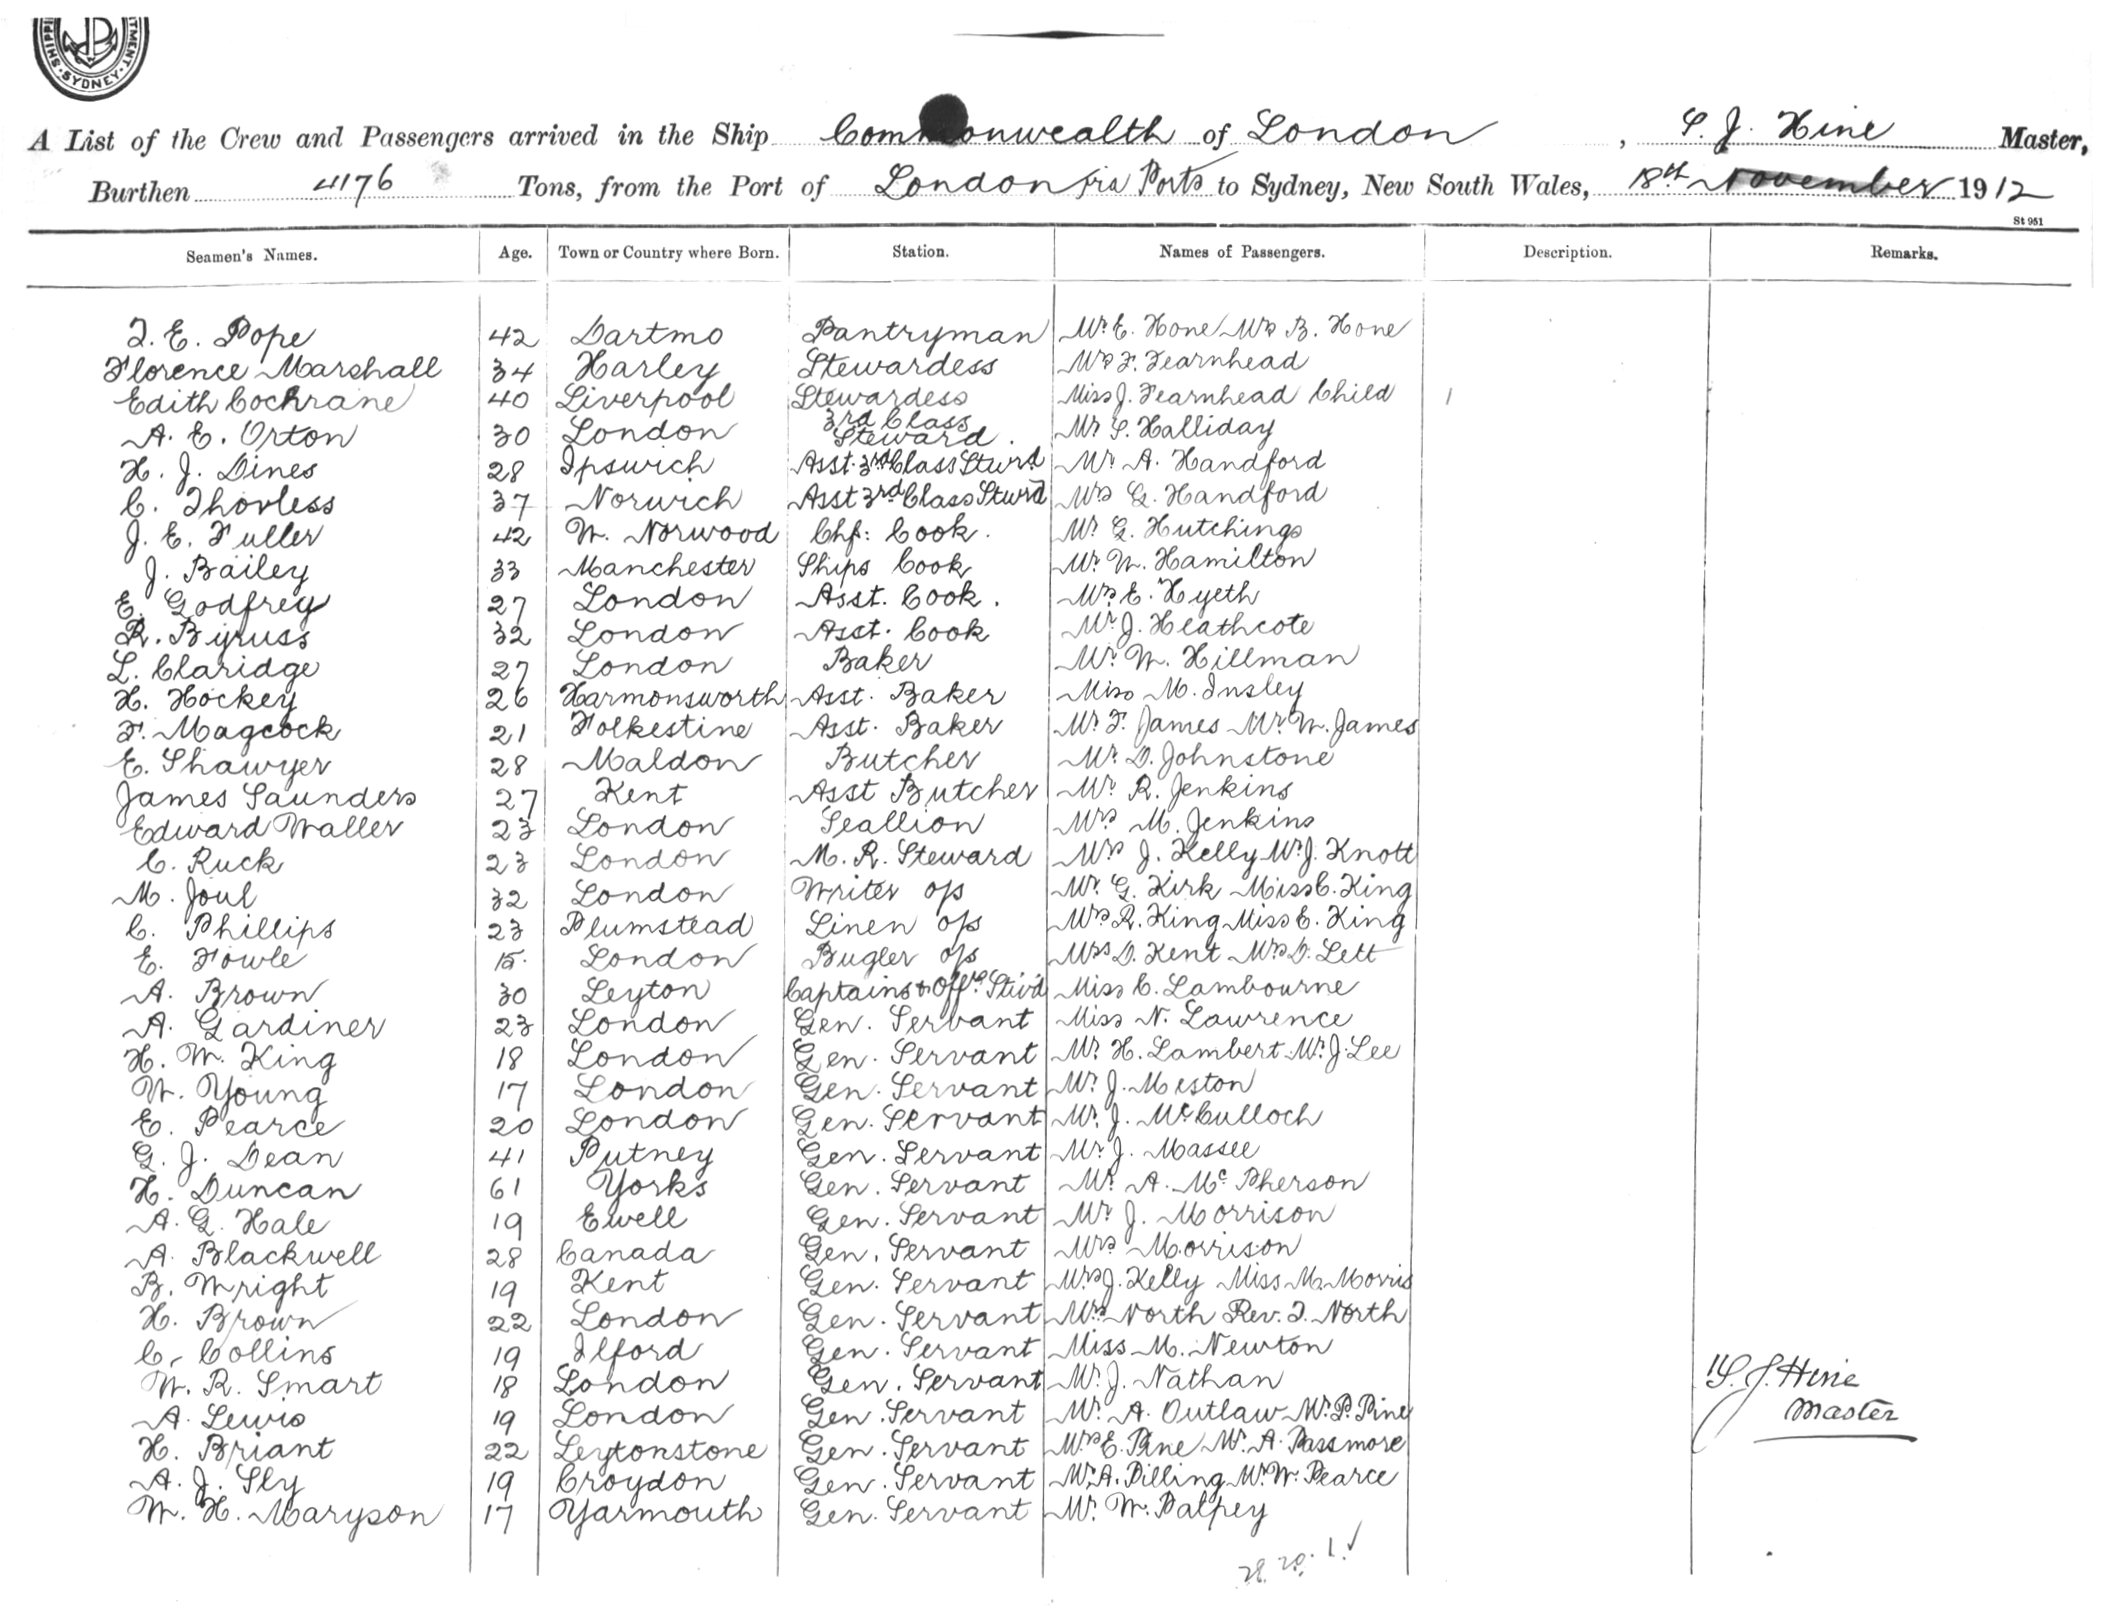 SHIPPING TMENT. SYDNEY.
A List of the Crew and Passengers arrived in the Ship Commonwealth of London, S. J. Hine Master,
Burthen 4176 Tons, from the Port of London via Ports to Sydney, New South Wales, 18th November 1912
St 951
Seamen's Names. Age. Town or Country where Born. Station. Names of Passengers. Description. Remarks.
T. E. Pope 42 Dartmo Pantryman Mr E. Hone Mrs B. Hone
Florence Marshall 34 Harley Stewardess Mrs F. Fearnhead
Edith Cochrane 40 Liverpool Stewardess Miss J. Fearnhead Child 1
A. E. Orton 30 London 3rd Class Steward. Mr S. Halliday
H. J. Dines 28 Ipswich Asst. 3rd Class Stwrd Mr A. Handford
C. Thorless 37 Norwich Asst 3rd Class Stwrd Mrs G. Handford
J. E. Fuller 42 W. Norwood Chf: Cook. Mr G. Hutchings
J. Bailey 33 Manchester Ships Cook Mr W. Hamilton
E. Godfrey 27 London Asst. Cook. Mrs E. Hyeth
R. Byruss 32 London Asst. Cook Mr J. Heathcote
L. Claridge 27 London Baker Mr W. Hillman
H. Hockey 26 Harmonsworth Asst. Baker Miss M. Insley
F. Magcock 21 Folkestine Asst. Baker Mr F. James Mr W. James
E. Shawyer 28 Maldon Butcher Mr D. Johnstone
James Saunders 27 Kent Asst Butcher Mr R. Jenkins
Edward Waller 23 London Scallion Mrs M. Jenkins
C. Ruck 23 London M. R. Steward Mrs J. Kelly Mr J. Knott
M. Joul 32 London Writer o/s Mr G. Kirk Miss C. King
C. Phillips 23 Plumstead Linen o/s Mrs R. King Miss E. King
E. Fowle 15 London Bugler o/s Mrs D. Kent Mrs D. Lett
A. Brown 30 Leyton Captains & Offrs Stwd Miss C. Lambourne
A. Gardiner 23 London Gen. Servant Miss N. Lawrence
H. W. King 18 London Gen. Servant Mr H. Lambert Mr J. Lee
W. Young 17 London Gen. Servant Mr J. Meston
E. Pearce 20 London Gen. Servant Mr J. McCulloch
G. J. Dean 41 Putney Gen. Servant Mr J. Massee
H. Duncan 61 Yorks Gen. Servant Mr A. McPherson
A. G. Hale 19 Ewell Gen. Servant Mr J. Morrison
A. Blackwell 28 Canada Gen. Servant Mrs Morrison
B. Wright 19 Kent Gen. Servant Mrs J. Kelly Miss M. Morris
H. Brown 22 London Gen. Servant Mrs North Rev. T. North
C. Collins 19 Ilford Gen. Servant Miss M. Newton
W. R. Smart 18 London Gen. Servant Mr J. Nathan S. J. Hine
A. Lewis 19 London Gen. Servant Mr A. Outlaw Mr P. Pine Master
H. Briant 22 Leytonstone Gen. Servant Mrs E. Pine Mr A. Passmore
A. J. Sly 19 Croydon Gen. Servant Mr A. Pilling Mr W. Pearce
W. H. Maryson 17 Yarmouth Gen. Servant Mr W. Palpey
28. 20. 1. ✓